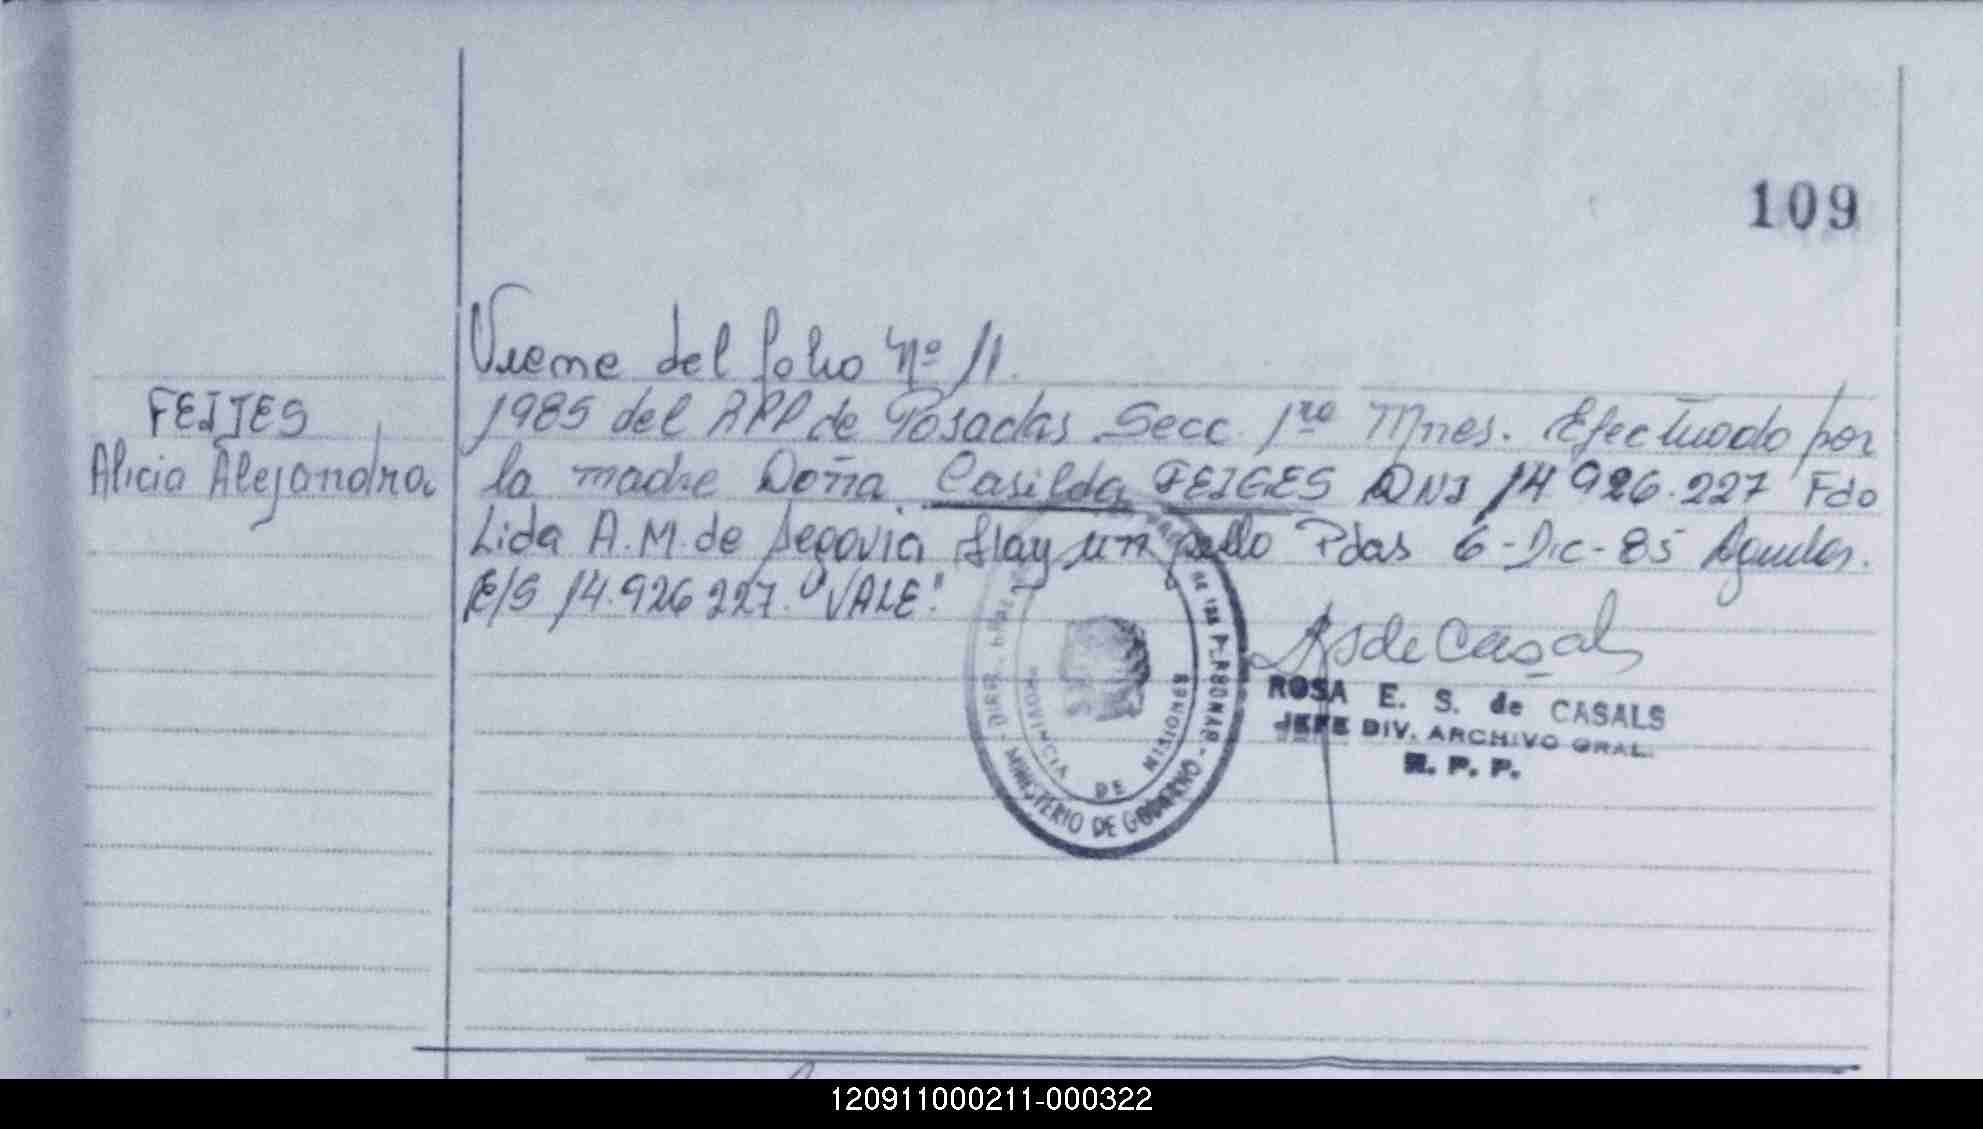 109
Viene del folio Nº 11.
FEIJES
Alicia Alejandra
1985 del RPP de Posadas Secc. 1ra Mnes. Efectuado por
la madre Doña Casilda FEIGES DNI 14 926.227 Fdo
Lida A.M. de Segovia Hay un sello Pdas 6-Dic-85
E/S 14.926 227. "VALE".
ROSA E. S. de CASALS
JEFE DIV. ARCHIVO GRAL.
R. P. P.
DE LAS PERSONAS - MINISTERIO DE GOBIERNO
PROVINCIA DE MISIONES
120911000211-000322